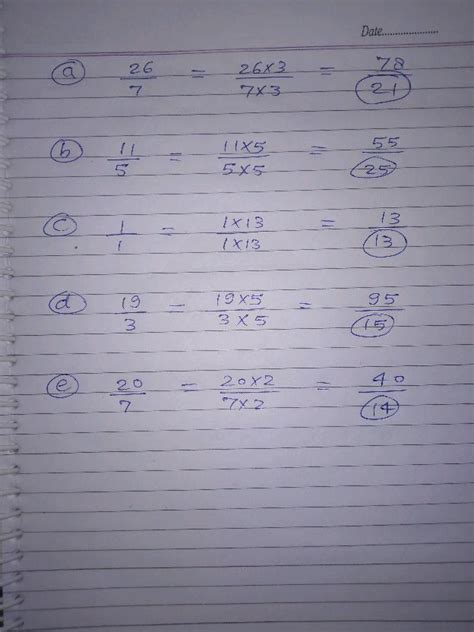 Date.....................
(a) 26/7 = 26×3/7×3 = 78/21
(b) 11/5 = 11×5/5×5 = 55/25
(c) 1/1 = 1×13/1×13 = 13/13
(d) 19/3 = 19×5/3×5 = 95/15
(e) 20/7 = 20×2/7×2 = 40/14